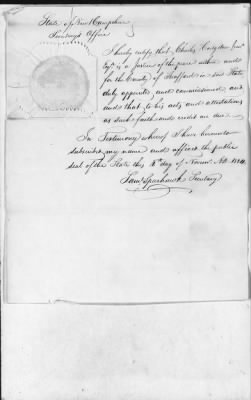 State of New Hampshire
Secretary's Office
I hereby certify that Charles
Esqr. is a Justice of the peace within and
for the County of Strafford in said State
duly appointed, and commissioned and
and that to his acts and attestations
as such faith and credit are due.
In Testimony whereof I have hereunto
subscribed my name and affixed the public
seal of the State this day of Novem. AD.
Saml. Sparhawk Secretary